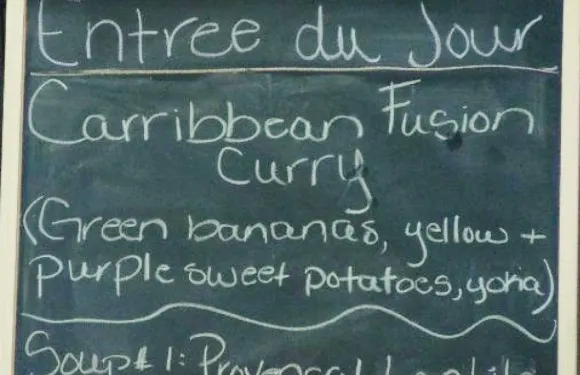 Entree du Jour
Carribbean Fusion
Curry
(Green bananas, yellow +
purple sweet potatoes, yoka)
Soup #1: Provencal